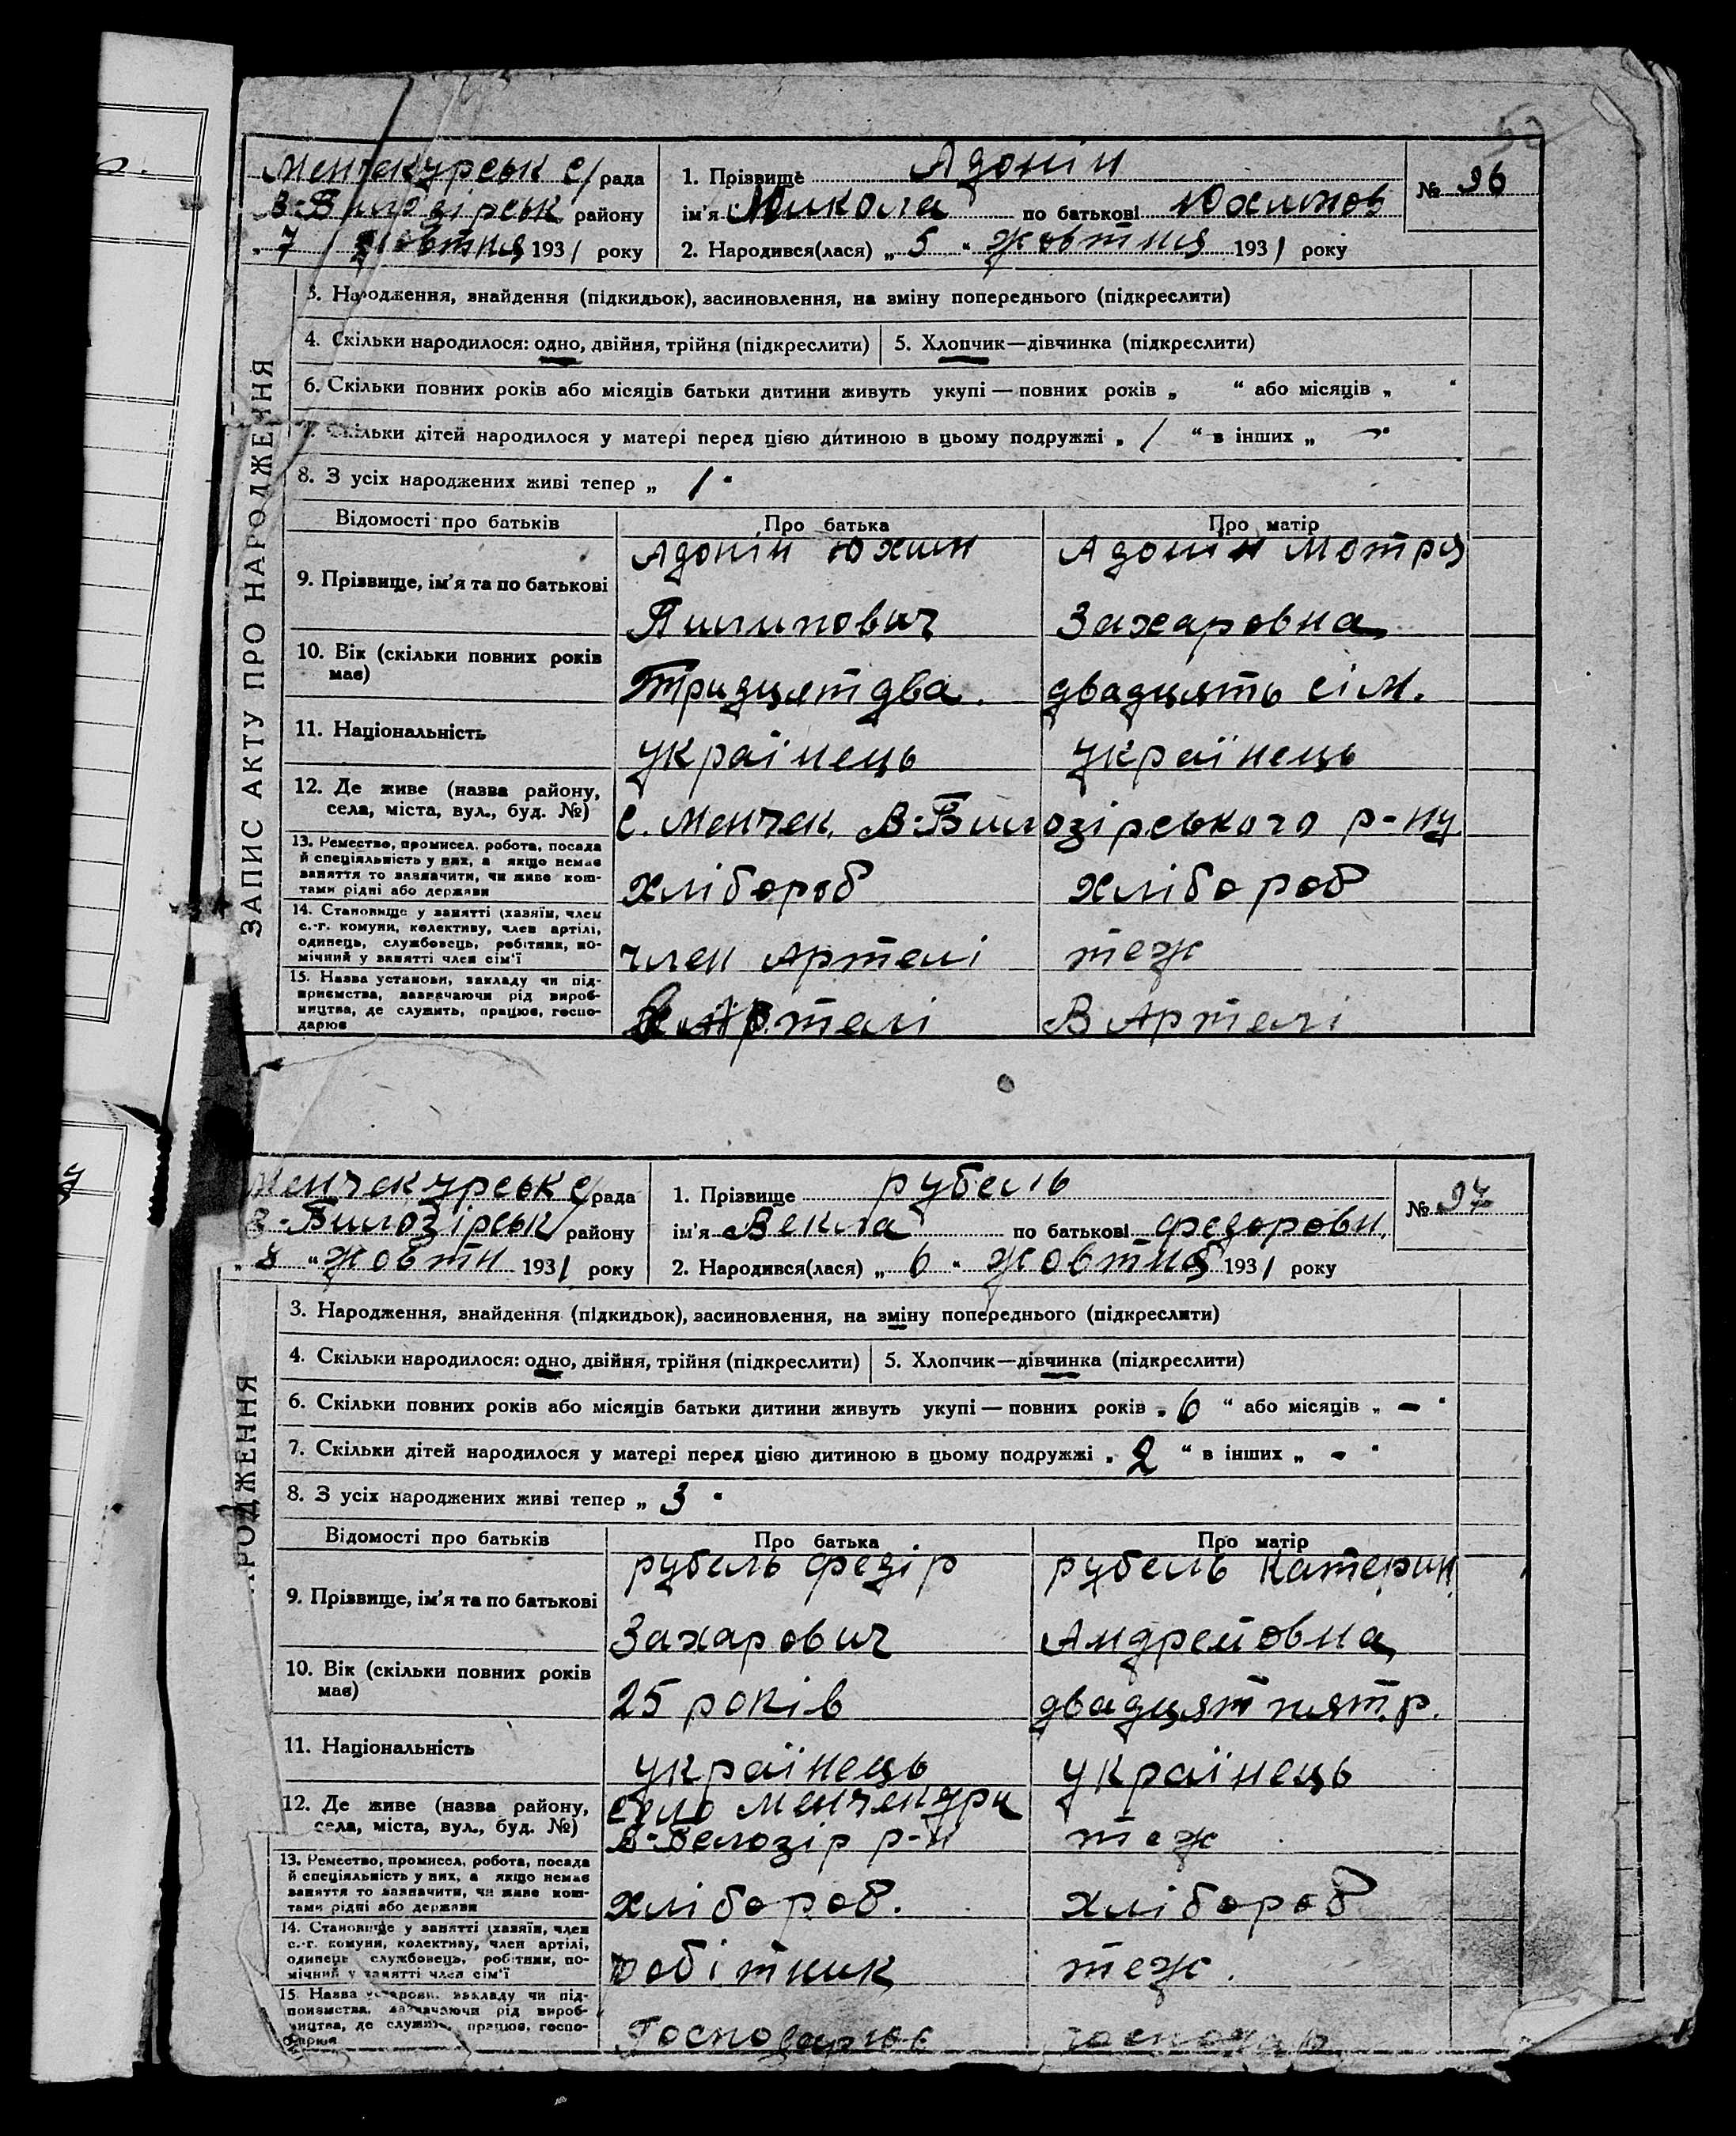 Менчекурськ с/рада
В-Билозірськ району
„7 Жовтня 1931 року
1. Прізвище Адонін
ім'я Микола по батькові Юхимов
2. Народився(лася) „5" жовтня 1931 року
№ 96
ЗАПИС АКТУ ПРО НАРОДЖЕННЯ
3. Народження, знайдення (підкидьок), засиновлення, на зміну попереднього (підкреслити)
4. Скільки народилося: одно, двійня, трійня (підкреслити) 5. Хлопчик—дівчинка (підкреслити)
6. Скільки повних років або місяців батьки дитини живуть укупі — повних років „ " або місяців „ "
7. Скільки дітей народилося у матері перед цією дитиною в цьому подружжі „ 1 " в інших „ - "
8. З усіх народжених живі тепер „ 1 "
Відомості про батьків Про батька Про матір
9. Прізвище, ім'я та по батькові
Адонін Юхим Адонін Мотря
Пилипович Захаровна
10. Вік (скільки повних років
має)
Тридцят два. двадцять сім.
11. Національність
українець українець
12. Де живе (назва району,
села, міста, вул., буд. №)
С. Менчек. В-Билозірського р-ну
13. Ремество, промисел, робота, посада
й спеціяльність у них, а якщо немає
заняття то зазначити, чи живе кош-
тами рідні або держави
хлібороб хлібороб
14. Становище у занятті (хазяїн, член
с.-г. комуни, колективу, член артілі,
одинець, службовець, робітник, по-
мічний у занятті член сім'ї
член Артелі теж
15. Назва установи, закладу чи під-
приємства, зазначаючи рід вироб-
ництва, де служить, працює, госпо-
дарює
Артелі В Артелі
Менчекурськ с/рада
В-Билозірськ району
„8 " жовтн 1931 року
1. Прізвище рубель
ім'я Векла по батькові федоровн.
2. Народився(лася) „ 6 " жовтня 1931 року
№ 97
РОДЖЕННЯ
3. Народження, знайдення (підкидьок), засиновлення, на зміну попереднього (підкреслити)
4. Скільки народилося: одно, двійня, трійня (підкреслити) 5. Хлопчик—дівчинка (підкреслити)
6. Скільки повних років або місяців батьки дитини живуть укупі — повних років „ 6 " або місяців „ - "
7. Скільки дітей народилося у матері перед цією дитиною в цьому подружжі „ 2 " в інших „ - "
8. З усіх народжених живі тепер „ 3 "
Відомості про батьків Про батька Про матір
9. Прізвище, ім'я та по батькові
рубель федір рубель Катерин.
Захарович Андреювна
10. Вік (скільки повних років
має)
25 років двадцят пят.р.
11. Національність
українець українець
12. Де живе (назва району,
села, міста, вул., буд. №)
село Менчекури
В-Белозір р-н теж
13. Ремество, промисел, робота, посада
й спеціяльність у них, а якщо немає
заняття то зазначити, чи живе кош-
тами рідні або держави
хлібороб. хлібороб
14. Становище у занятті (хазяїн, член
с.-г. комуни, колективу, член артілі,
одинець, службовець, робітник, по-
мічний у занятті член сім'ї
робітник теж.
15. Назва установи, закладу чи під-
приємства, зазначаючи рід вироб-
ництва, де служить, працює, госпо-
дарює
Господарює